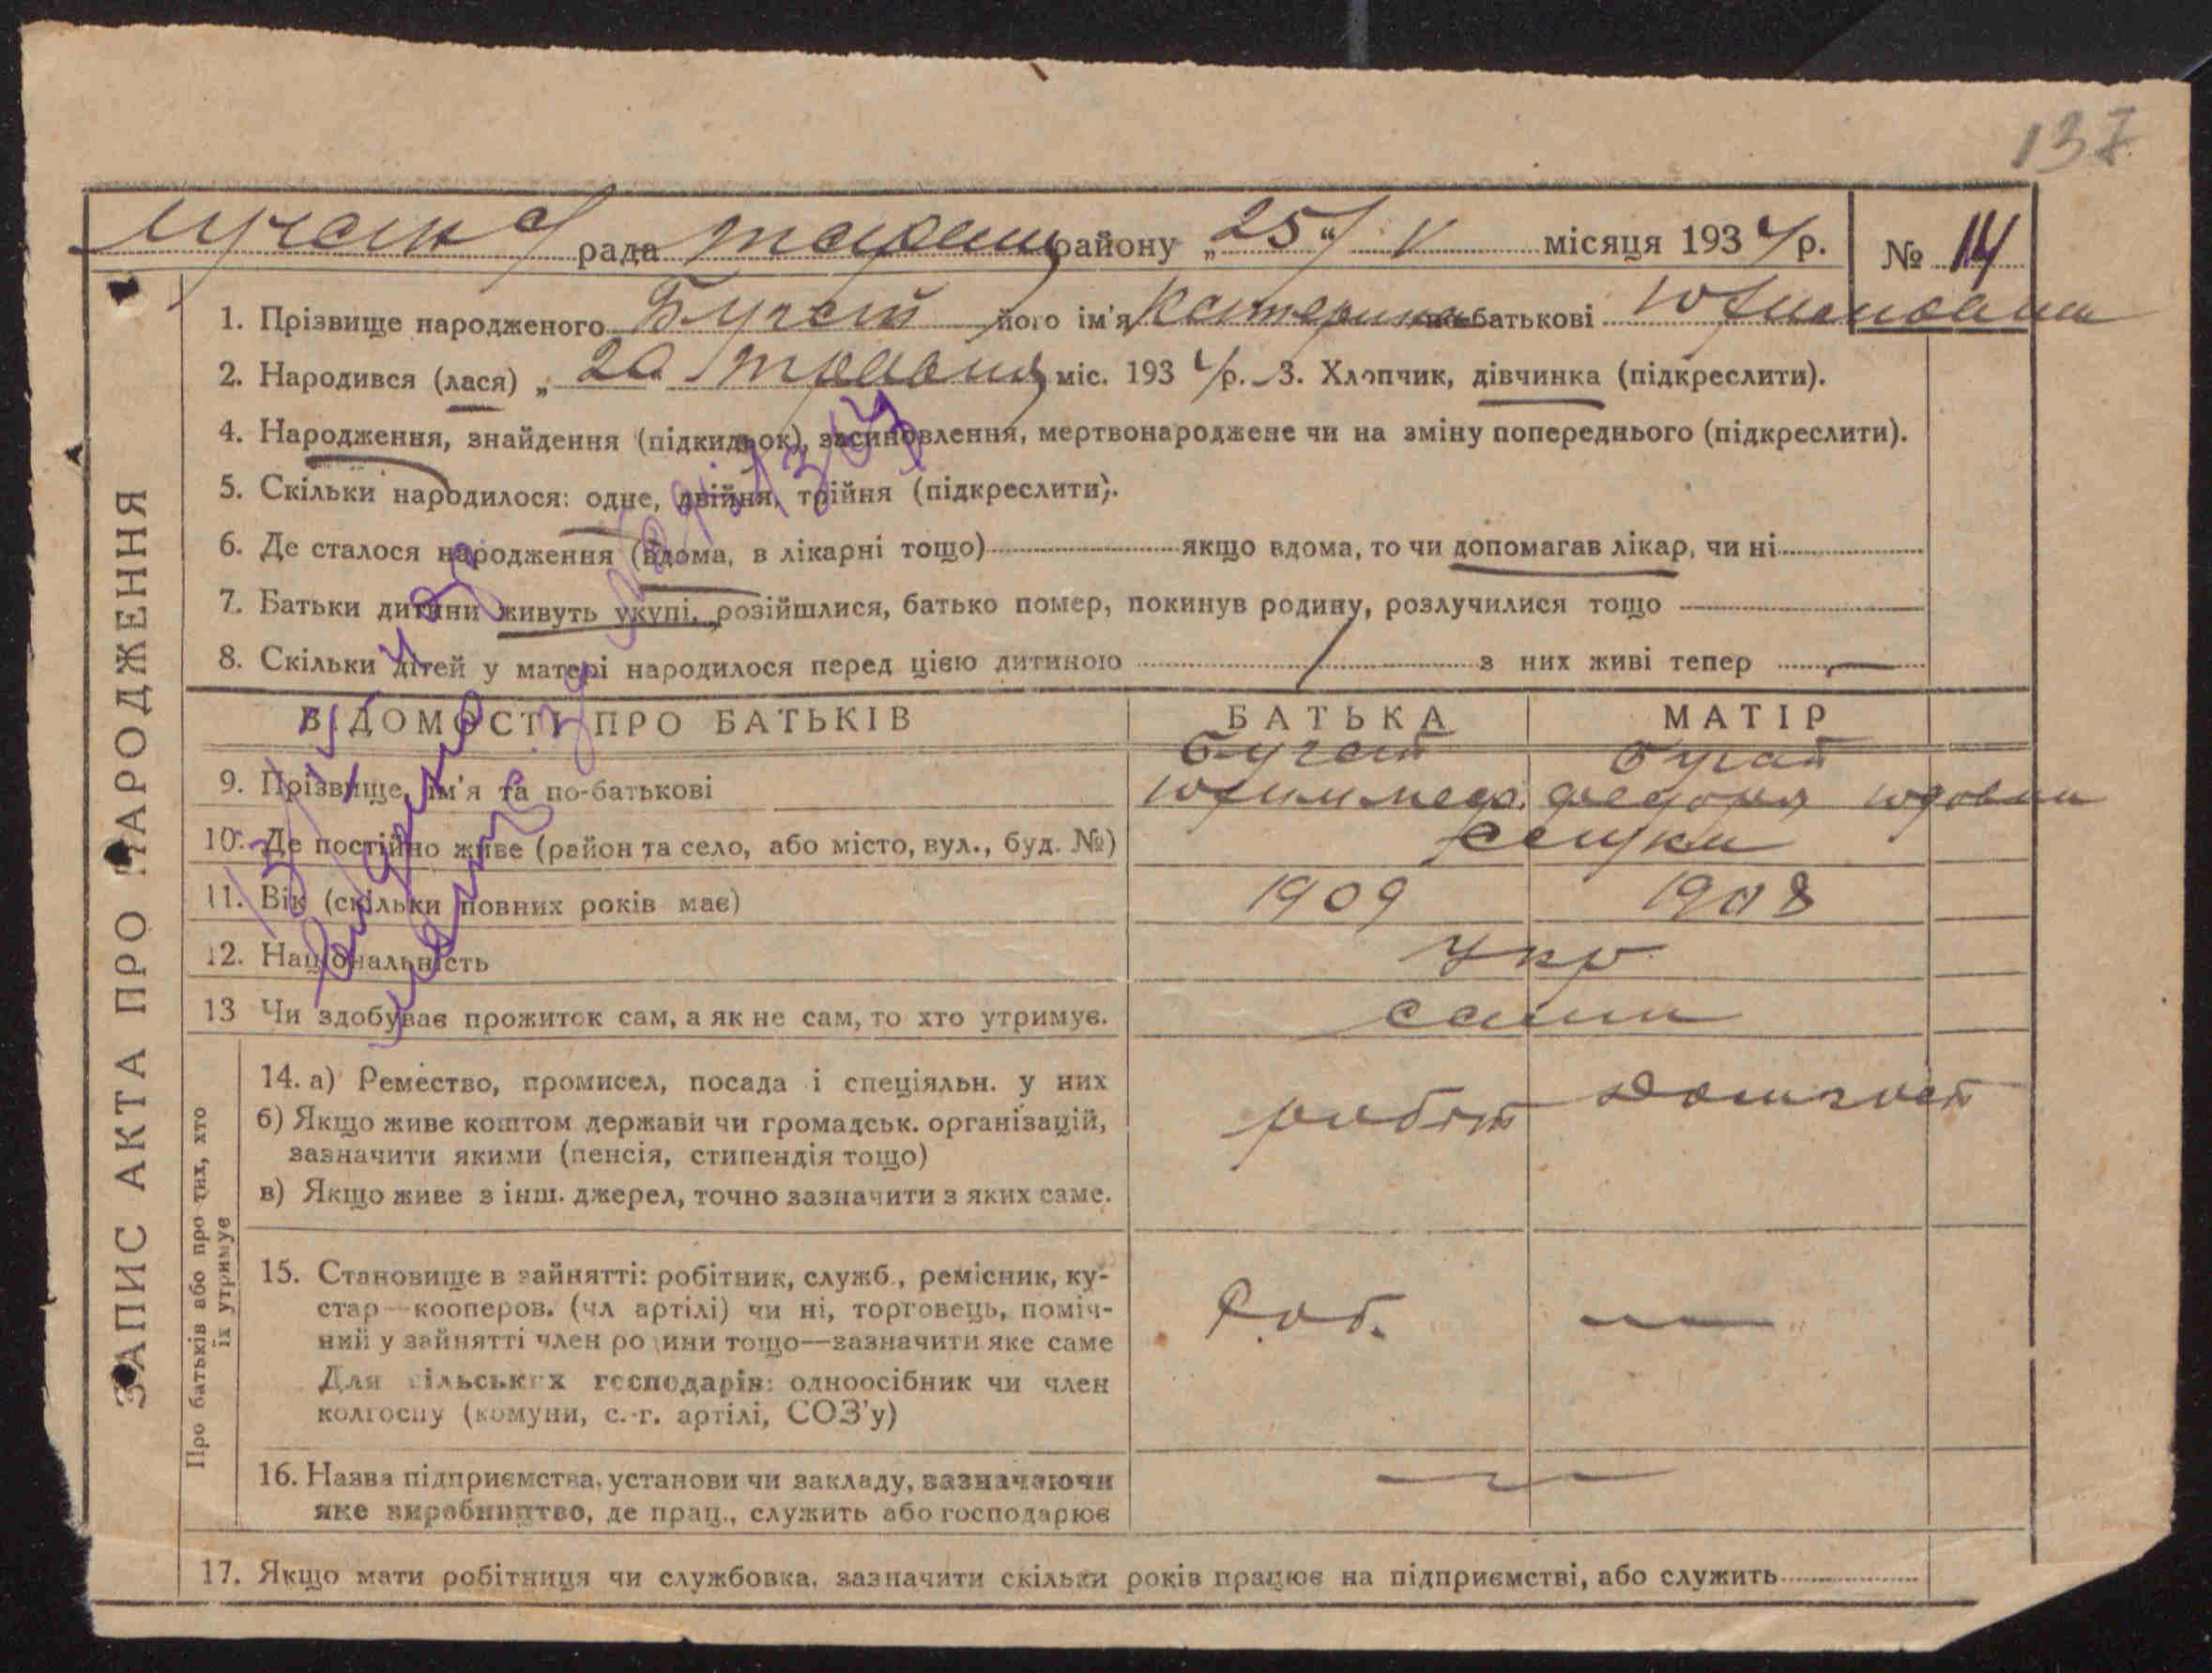 137
рада району „25“ V місяця 1934 р. № 14
1. Прізвище народженого Бугат його ім'я Катерина по-батькові Юхимовна
2. Народився (лася) „20“ травня міс. 1934 р. 3. Хлопчик, дівчинка (підкреслити).
4. Народження, знайдення (підкидьок), засиновлення, мертвонароджене чи на зміну попереднього (підкреслити).
5. Скільки народилося: одне, двійня, трійня (підкреслити).
6. Де сталося народження (вдома, в лікарні тощо) якщо вдома, то чи допомагав лікар, чи ні
7. Батьки дитини живуть укупі, розійшлися, батько помер, покинув родину, розлучилися тощо —
8. Скільки дітей у матері народилося перед цією дитиною / з них живі тепер —
ВІДОМОСТІ ПРО БАТЬКІВ БАТЬКА МАТІР
Бугат Бугат
9. Прізвище, ім'я та по-батькові Юхим
10. Де постійно живе (район та село, або місто, вул., буд. №)
11. Вік (скільки повних років має) 1909 1908
12. Національність Укр
13 Чи здобуває прожиток сам, а як не сам, то хто утримує. сами
14. а) Ремество, промисел, посада і спеціяльн. у них робіт Домгосп
б) Якщо живе коштом держави чи громадськ. організацій,
зазначити якими (пенсія, стипендія тощо)
в) Якщо живе з інш. джерел, точно зазначити з яких саме.
15. Становище в зайнятті: робітник, служб., ремісник, ку-
стар—кооперов. (чл артілі) чи ні, торговець, поміч- Роб. —
ний у зайнятті член родини тощо—зазначити яке саме
Для сільських господарів: одноосібник чи член
колгоспу (комуни, с.-г. артілі, СОЗ'у)
16. Назва підприємства, установи чи закладу, зазначаючи —
яке виробництво, де прац., служить або господарює
17. Якщо мати робітниця чи службовка, зазначити скільки років працює на підприємстві, або служить
ЗАПИС АКТА ПРО НАРОДЖЕННЯ
Про батьків або про тих, хто
їх утримує